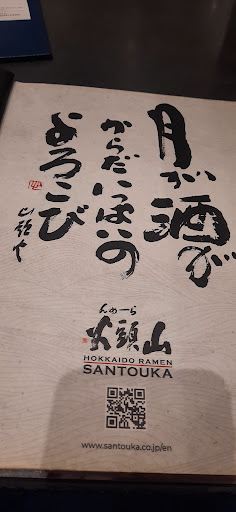 月が酒が
からだいっぱいの
よろこび
山頭火
らーめん
山頭火
HOKKAIDO RAMEN
SANTOUKA
www.santouka.co.jp/en